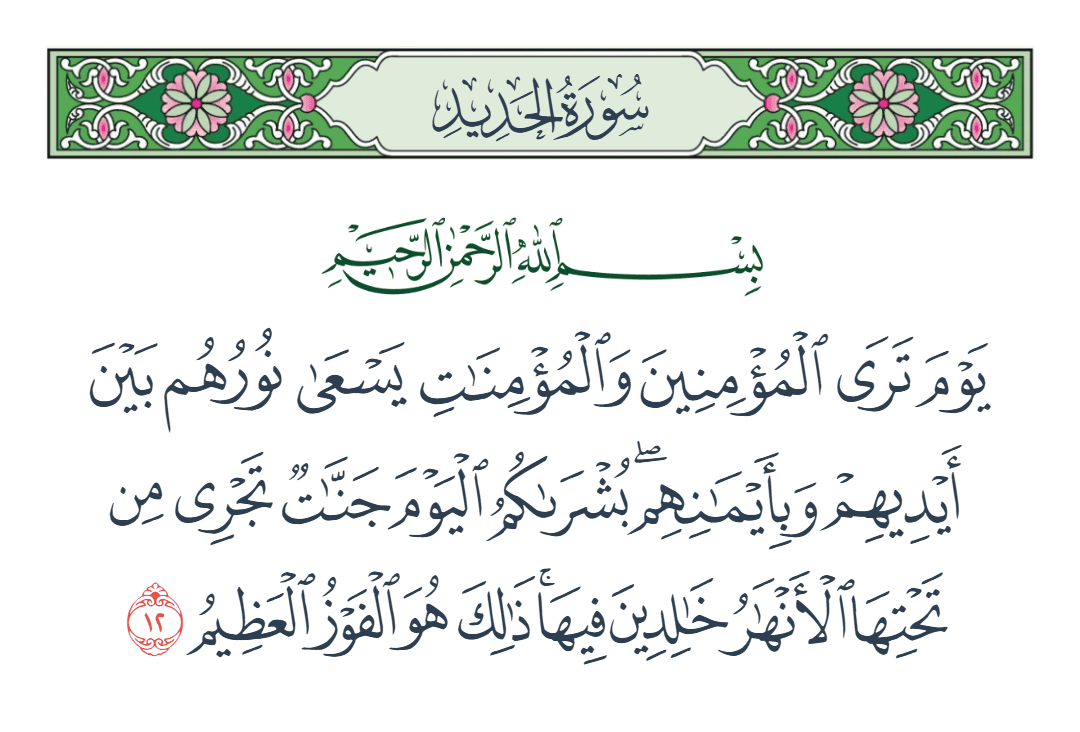 سُورَةُ الحَدِيدِ
بِسْمِ ٱللَّهِ ٱلرَّحْمَٰنِ ٱلرَّحِيمِ
يَوْمَ تَرَى ٱلْمُؤْمِنِينَ وَٱلْمُؤْمِنَٰتِ يَسْعَىٰ نُورُهُم بَيْنَ
أَيْدِيهِمْ وَبِأَيْمَٰنِهِمۖ بُشْرَىٰكُمُ ٱلْيَوْمَ جَنَّٰتٌ تَجْرِى مِن
تَحْتِهَا ٱلْأَنْهَٰرُ خَٰلِدِينَ فِيهَاۚ ذَٰلِكَ هُوَ ٱلْفَوْزُ ٱلْعَظِيمُ ١٢